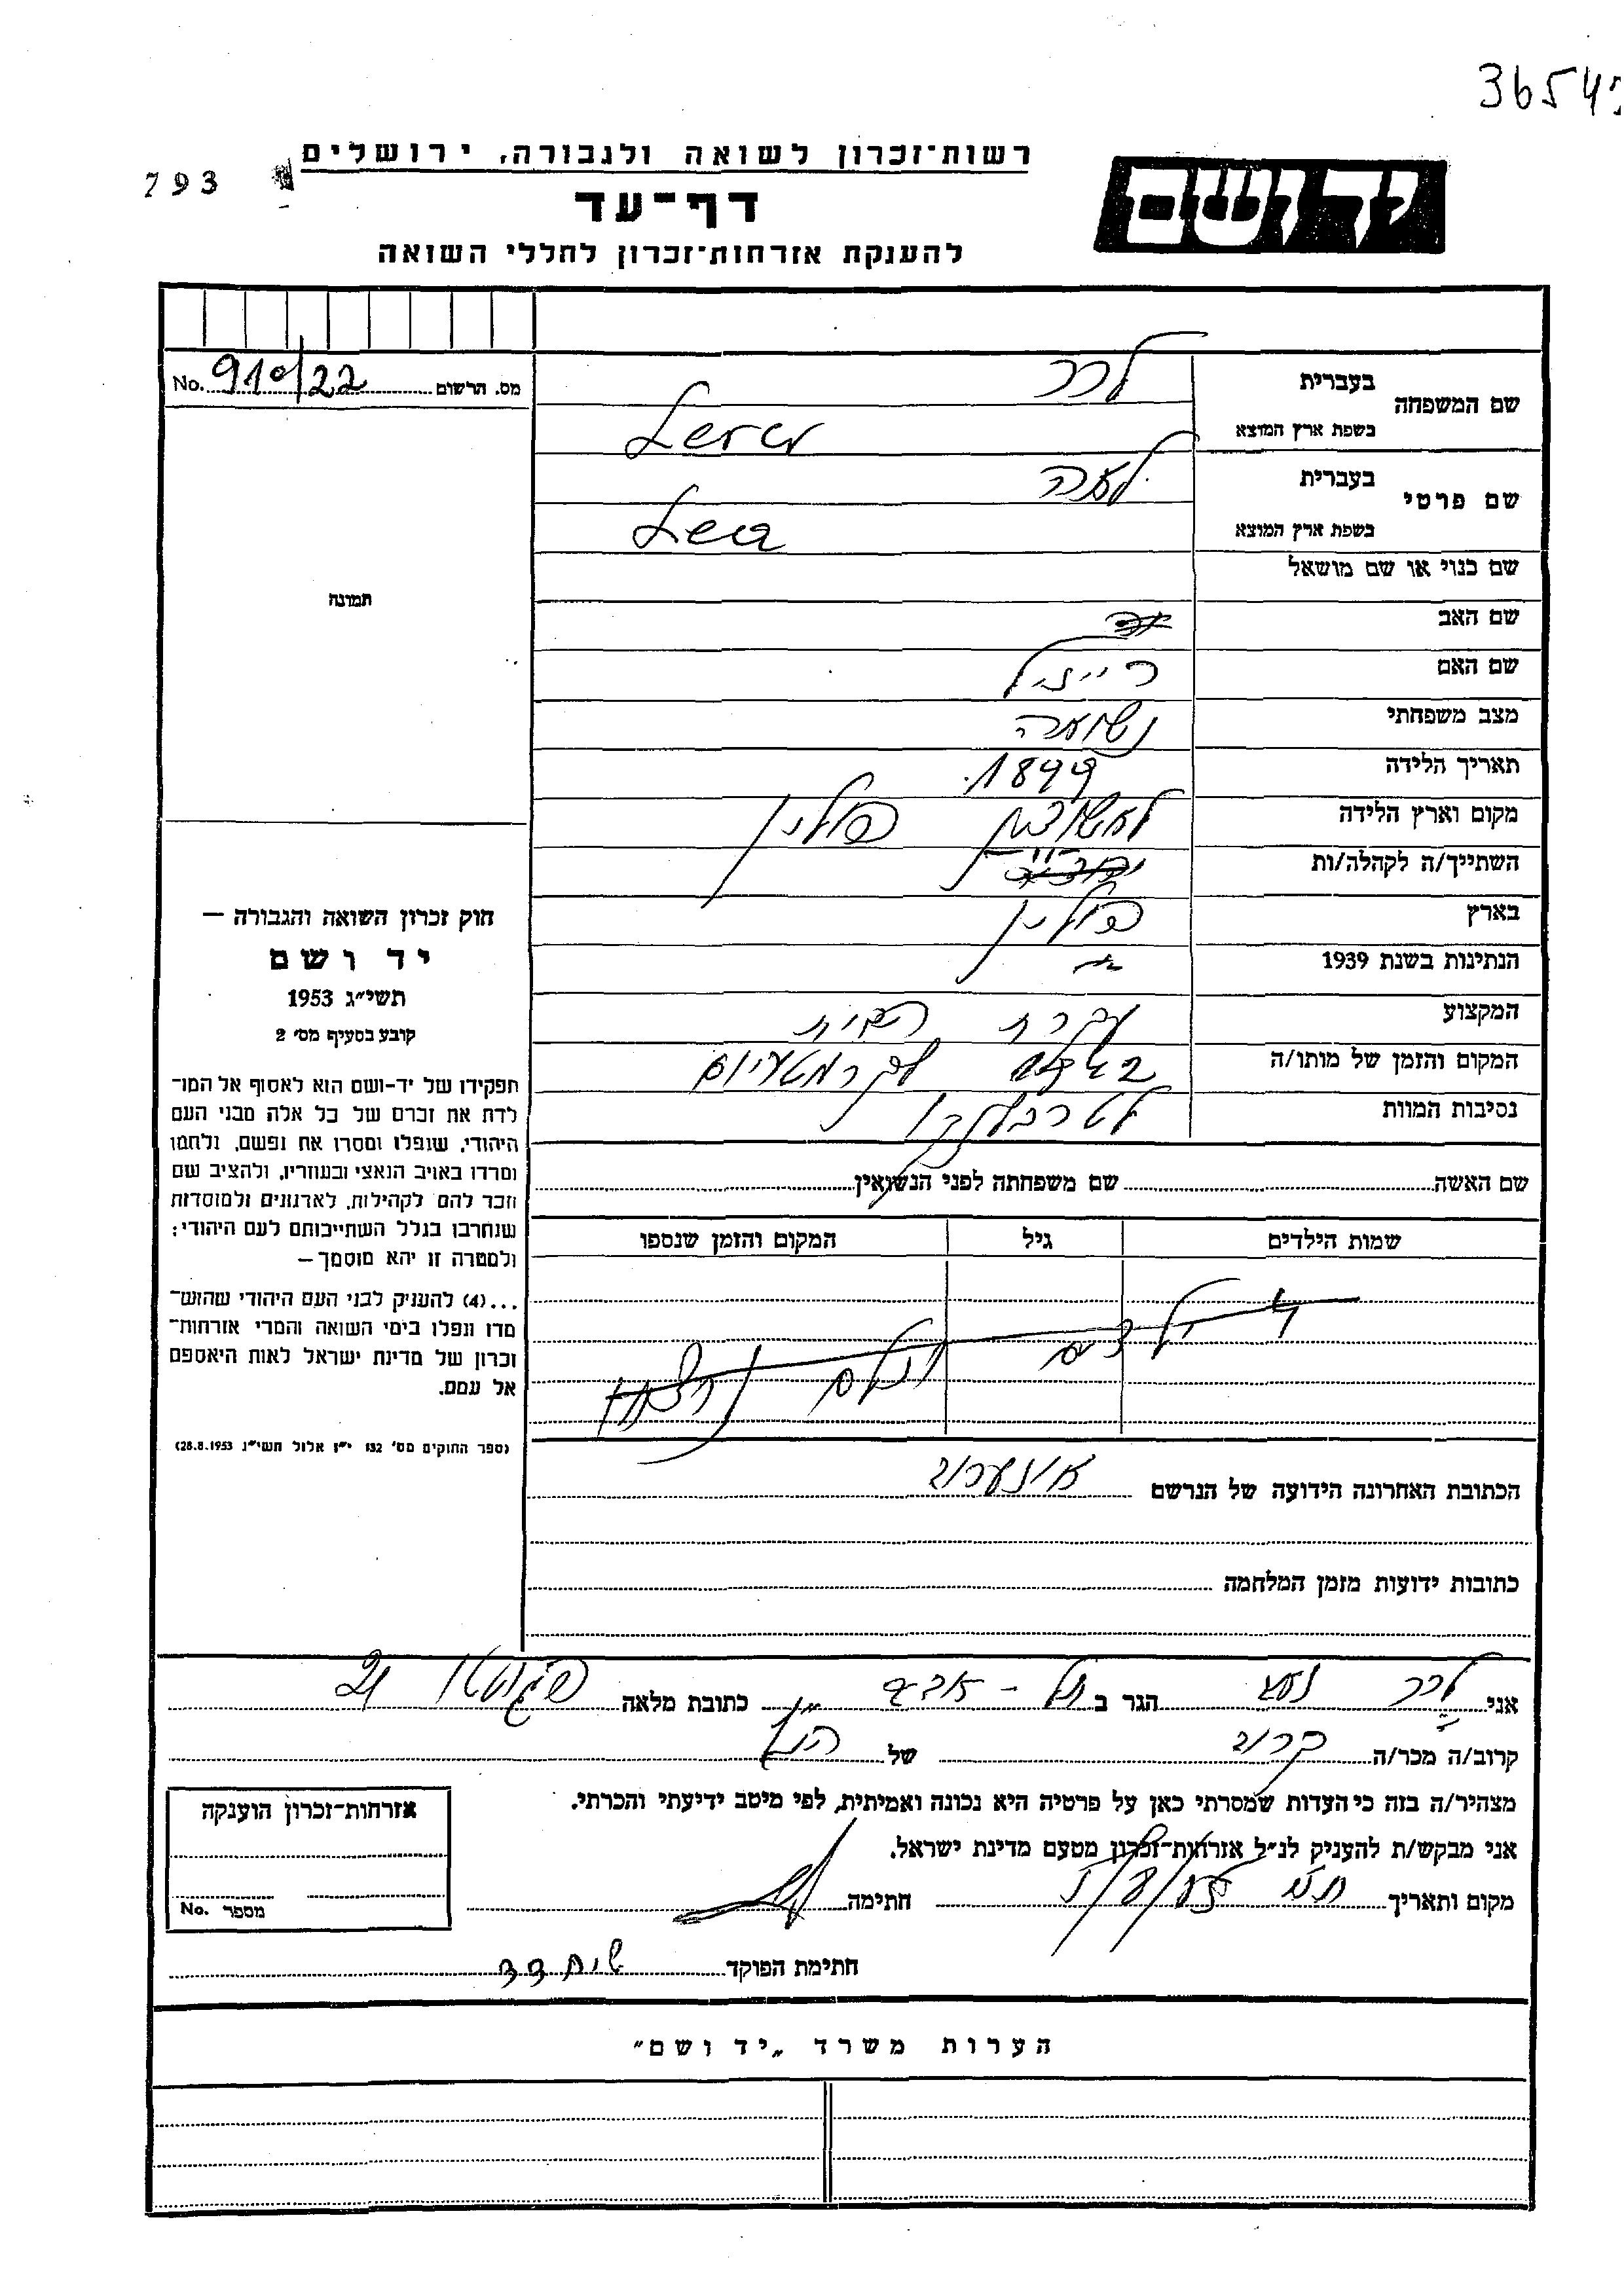 3654
793
רשות־זכרון לשואה ולגבורה, ירושלים
יד ושם
דף־עד
להענקת אזרחות־זכרון לחללי השואה
No. 910/22 מס. הרשום
שם המשפחה
בעברית לרר
בשפת ארץ המוצא Lerer
שם פרטי
בעברית לאה
בשפת ארץ המוצא Lea
שם כנוי או שם מושאל
תמונה
שם האב
שם האם רייזיל
מצב משפחתי נשואה
תאריך הלידה 1899
מקום וארץ הלידה פולין
השתייך/ה לקהלה/ות
בארץ פולין
הנתינות בשנת 1939
המקצוע עקרת הבית
המקום והזמן של מותו/ה
נסיבות המוות לטרבלינקי
שם האשה שם משפחתה לפני הנשואין
שמות הילדים גיל המקום והזמן שנספו
הכתובת האחרונה הידועה של הנרשם
כתובות ידועות מזמן המלחמה
חוק זכרון השואה והגבורה —
יד ושם
תשי״ג 1953
קובע בסעיף מס׳ 2
תפקידו של יד־ושם הוא לאסוף אל המו־
לדת את זכרם של כל אלה מבני העם
היהודי, שנפלו ומסרו את נפשם, נלחמו
ומרדו באויב הנאצי ובעוזריו, ולהציב שם
וזכר להם לקהילות, לארגונים ולמוסדות
שנחרבו בגלל השתייכותם לעם היהודי;
ולמטרה זו יהא מוסמך —
...(4) להעניק לבני העם היהודי שהוש־
מדו ונפלו בימי השואה והמרי אזרחות־
זכרון של מדינת ישראל לאות היאספם
אל עמם.
(ספר החוקים מס׳ 132 י״ז אלול תשי״ג 28.8.1953)
אני לרר הגר ב תל - אביב כתובת מלאה
קרוב/ה מכר/ה קרוב של הנ״ל
מצהיר/ה בזה כי העדות שמסרתי כאן על פרטיה היא נכונה ואמיתית, לפי מיטב ידיעתי והכרתי.
אני מבקש/ת להעניק לנ״ל אזרחות־זכרון מטעם מדינת ישראל.
מקום ותאריך חתימה
חתימת הפוקד
אזרחות־זכרון הוענקה
No. מספר
הערות משרד „יד ושם״